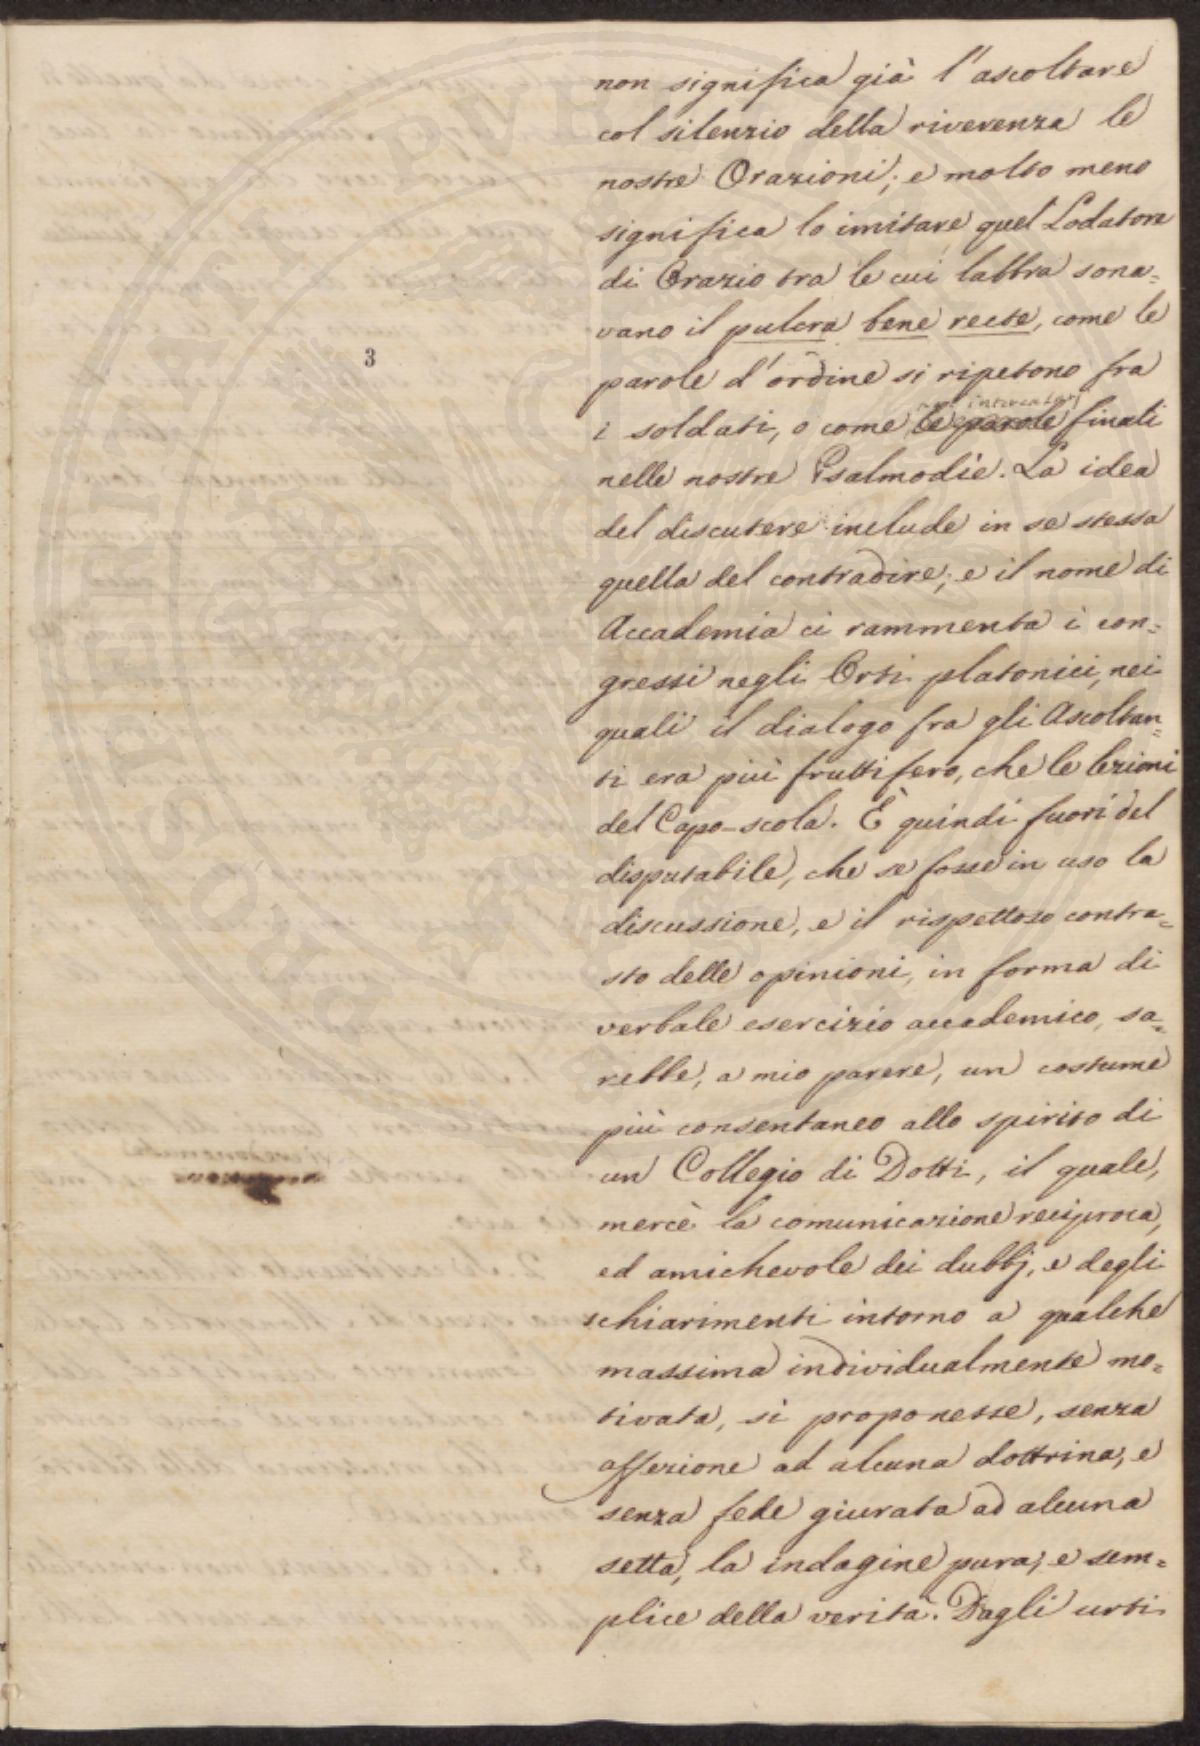 non significa già l'ascoltare
col silenzio della riverenza le
nostre Orazioni; e molto meno
significa lo imitare quel Lodatore
di Orazio tra le cui labbra sona=
vano il pulcra bene recte, come le
3
parole d'ordine si ripetono fra
i soldati, o come le parole finali
nelle nostre Psalmodie. La idea
del discutere include in se stessa
quella del contradire; e il nome di
Accademia ci rammenta i con=
gressi negli Orti platonici, nei
quali il dialogo fra gli Ascoltan=
ti era più fruttifero, che le lezioni
del Capo-scola. È quindi fuori del
disputabile, che se fosse in uso la
discussione, e il rispettoso contra=
sto delle opinioni, in forma di
verbale esercizio accademico, sa=
rebbe, a mio parere, un costume
più consentaneo allo spirito di
un Collegio di Dotti, il quale,
mercè la comunicazione reciproca,
ed amichevole dei dubbj, e degli
schiarimenti intorno a qualche
massima individualmente mo=
tivata, si proponesse, senza
affezione ad alcuna dottrina, e
senza fede giurata ad alcuna
setta, la indagine pura, e sem=
plice della verità. Dagli urti